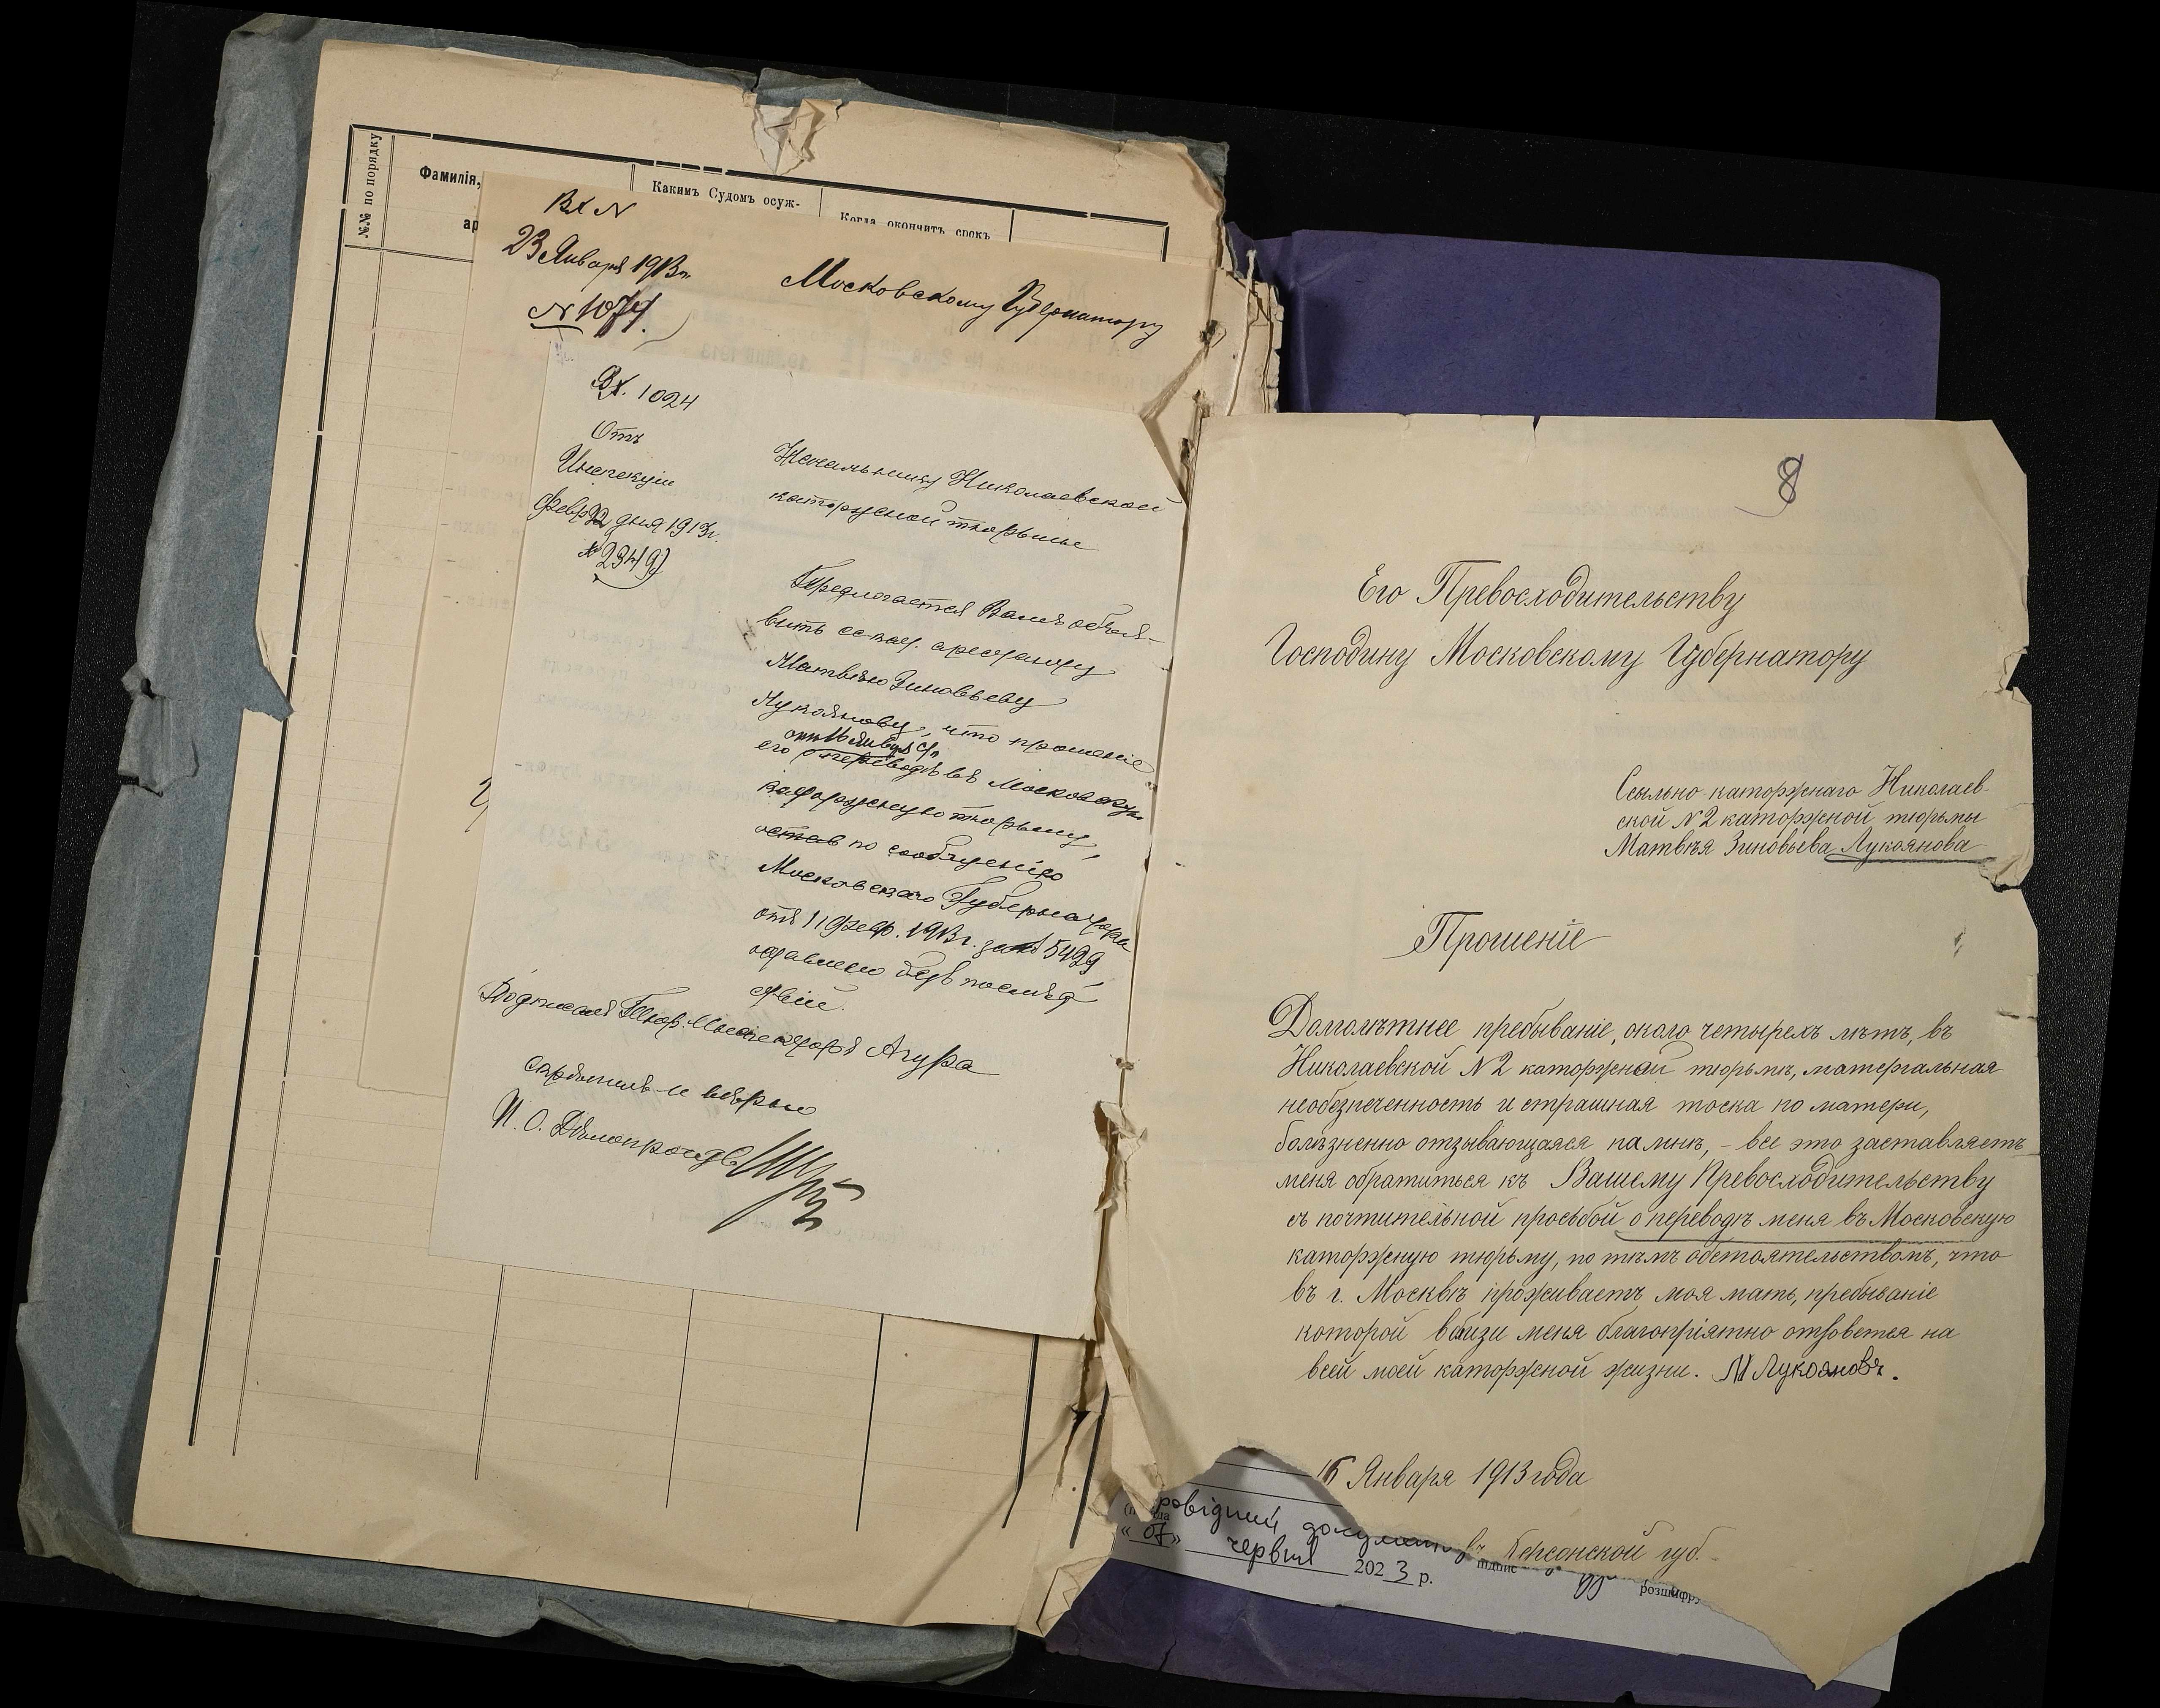 №№ по порядку
Фамилія,
ар
Какимъ Судомъ осуж-
Когда окончитъ срокъ
Вх N
23 Января 1913 г.
N 1074
Московскому Губернатору
Вх. 1024
Отъ
Инспекціи
февр 22 дня 1913 г.
№ 2349
Начальнику Николаевской
каторжной тюрьмы
Предлагается Вамъ объя-
вить сс-кат. арестанту
Матвѣю Зиновьеву
Лукоянову, что прошеніе
отъ 16 Января с/г
его о переводѣ въ Московскую
каторжную тюрьму
остав по сообщенію
Московскаго Губернатора
отъ 11 февр. 1913 г. за № 5429
оставлено безъ послѣд
ствій.
Подписалъ Тюр. Инспекторъ Агура
Скрѣпилъ и вѣрно
И. О. Дѣлопроизв
8
Его Превосходительству
Господину Московскому Губернатору
Ссыльно-каторжнаго Николаев-
ской N 2 каторжной тюрьмы
Матвѣя Зиновьева Лукоянова
Прошеніе
Долголѣтнее пребываніе, около четырехъ лѣтъ, въ
Николаевской N 2 каторжной тюрьмѣ, матеріальная
необезпеченность и страшная тоска по матери,
болѣзненно отзывающаяся на мнѣ, – все это заставляетъ
меня обратиться къ Вашему Превосходительству
съ почтительной просьбой о переводѣ меня въ Московскую
каторжную тюрьму, по тѣмъ обстоятельствомъ, что
въ г. Москвѣ проживаетъ моя мать, пребываніе
которой вблизи меня благопріятно отзовется на
всей моей каторжной жизни. М Лукояновъ.
16 Января 1913 года
Херсонской губ.
ровідний документ
« 07 » червня 2023 р.
підпис
розшифр